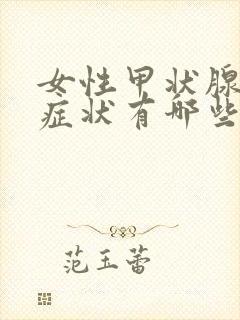 女性甲状腺
症状有哪些
范玉蕾